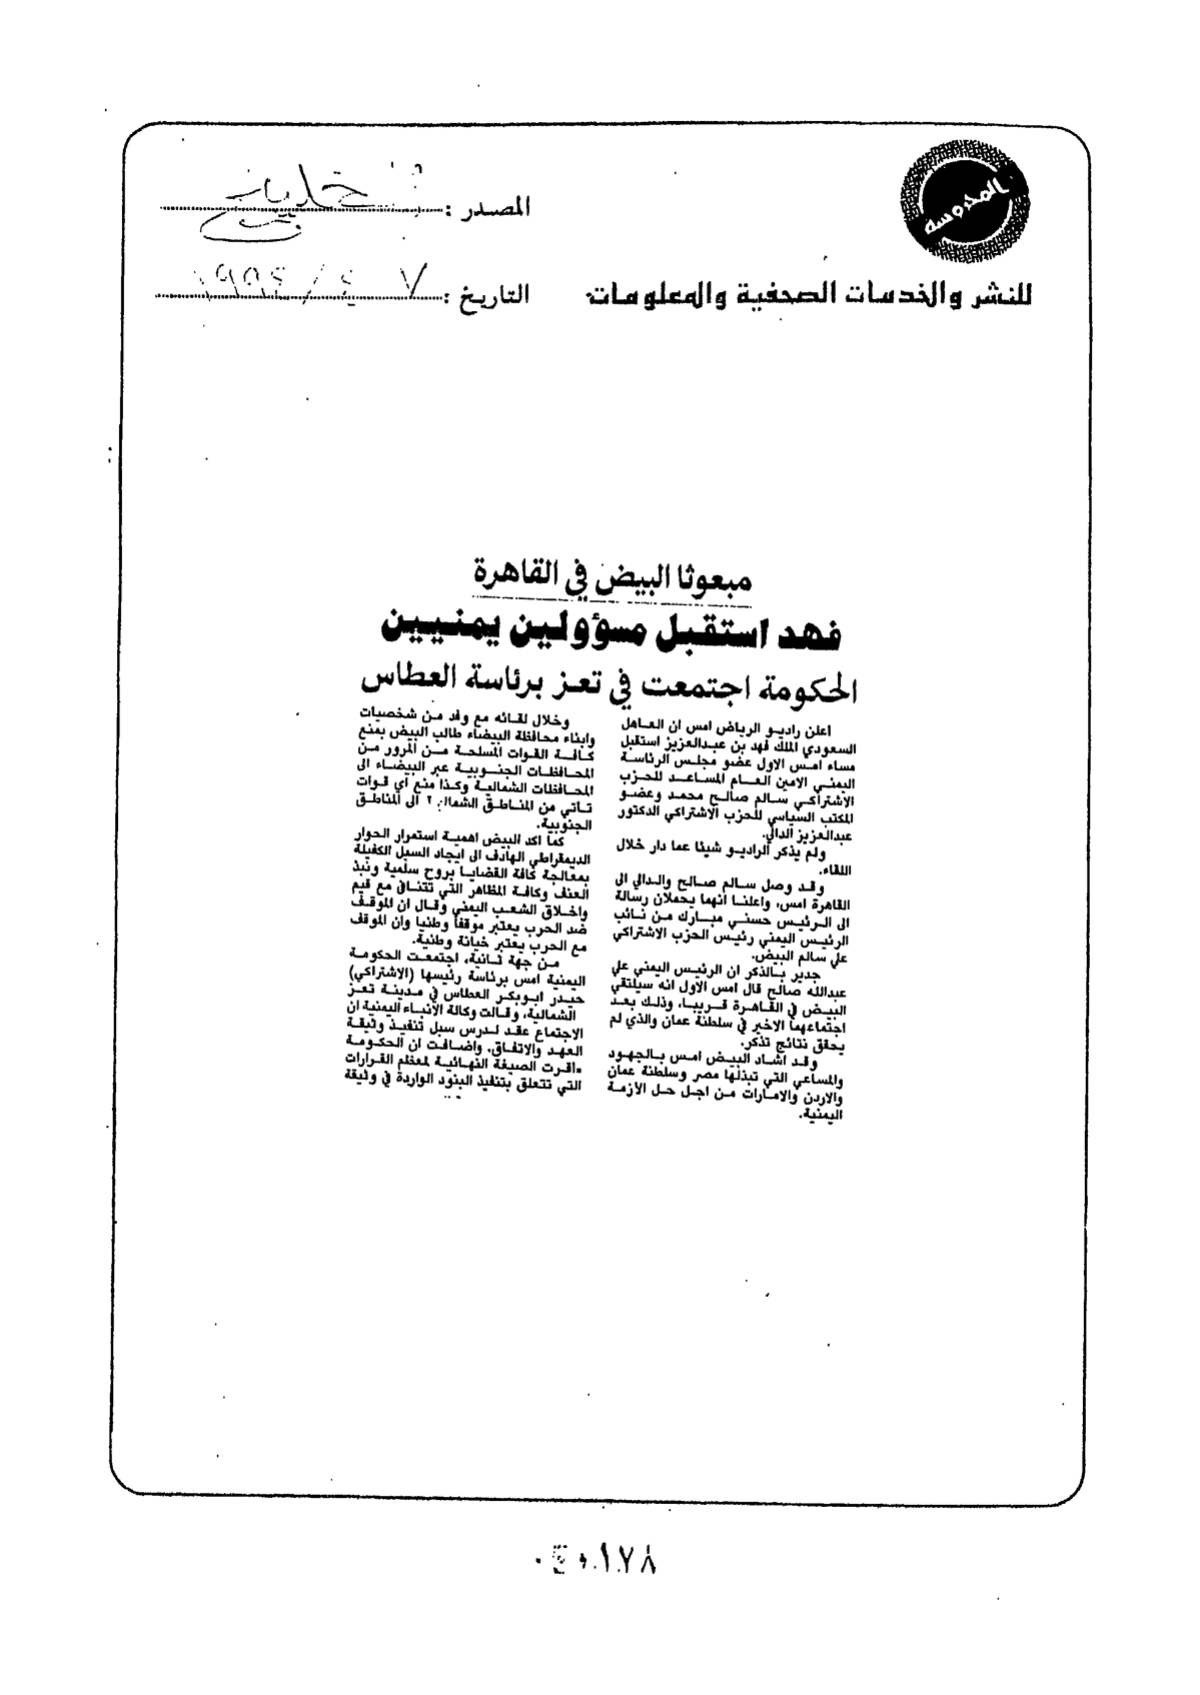 المحروسة
للنشر والخدمات الصحفية والمعلومات
المصدر :
التاريخ : ٧ / ٤ / ١٩٩٤
مبعوثا البيض في القاهرة
فهد استقبل مسؤولين يمنيين
الحكومة اجتمعت في تعز برئاسة العطاس
اعلن راديو الرياض امس ان العاهل
السعودي الملك فهد بن عبدالعزيز استقبل
مساء امس الاول عضو مجلس الرئاسة
اليمني الامين العام المساعد للحزب
الاشتراكي سالم صالح محمد وعضو
المكتب السياسي للحزب الاشتراكي الدكتور
عبدالعزيز الدالي.
ولم يذكر الراديو شيئا عما دار خلال
اللقاء.
وقد وصل سالم صالح والدالي الى
القاهرة امس، واعلنا انهما يحملان رسالة
الى الرئيس حسني مبارك من نائب
الرئيس اليمني رئيس الحزب الاشتراكي
علي سالم البيض.
جدير بالذكر ان الرئيس اليمني علي
عبدالله صالح قال امس الاول انه سيلتقي
البيض في القاهرة قريبا، وذلك بعد
اجتماعهما الاخير في سلطنة عمان والذي لم
يحقق نتائج تذكر.
وقد اشاد البيض امس بالجهود
والمساعي التي تبذلها مصر وسلطنة عمان
والاردن والامارات من اجل حل الأزمة
اليمنية.
وخلال لقائه مع وفد من شخصيات
وابناء محافظة البيضاء طالب البيض بمنع
كافة القوات المسلحة من المرور من
المحافظات الجنوبية عبر البيضاء الى
المحافظات الشمالية وكذا منع أي قوات
تاتي من المناطق الى المناطق
الجنوبية.
كما اكد البيض اهمية استمرار الحوار
الديمقراطي الهادف الى ايجاد السبل الكفيلة
بمعالجة كافة القضايا بروح سلمية ونبذ
العنف وكافة المظاهر التي تتنافى مع قيم
واخلاق الشعب اليمني وقال ان الموقف
ضد الحرب يعتبر موقفا وطنيا وان الموقف
مع الحرب يعتبر خيانة وطنية.
من جهة ثانية، اجتمعت الحكومة
اليمنية امس برئاسة رئيسها (الاشتراكي)
حيدر ابوبكر العطاس في مدينة تعز
الشمالية، وقالت وكالة الأنباء اليمنية ان
الاجتماع عقد لدرس سبل تنفيذ وثيقة
العهد والاتفاق. واضافت ان الحكومة
«اقرت الصيغة النهائية لمعظم القرارات
التي تتعلق بتنفيذ البنود الواردة في وثيقة